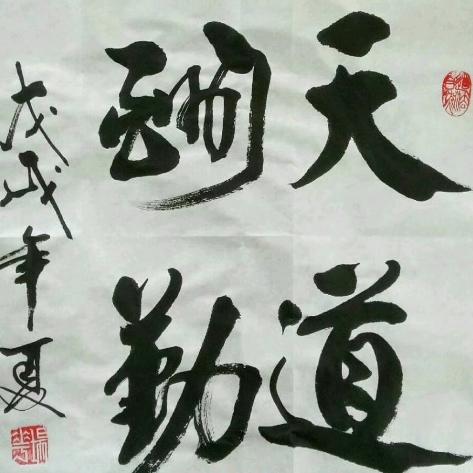 天道
酬勤
戊戌年夏